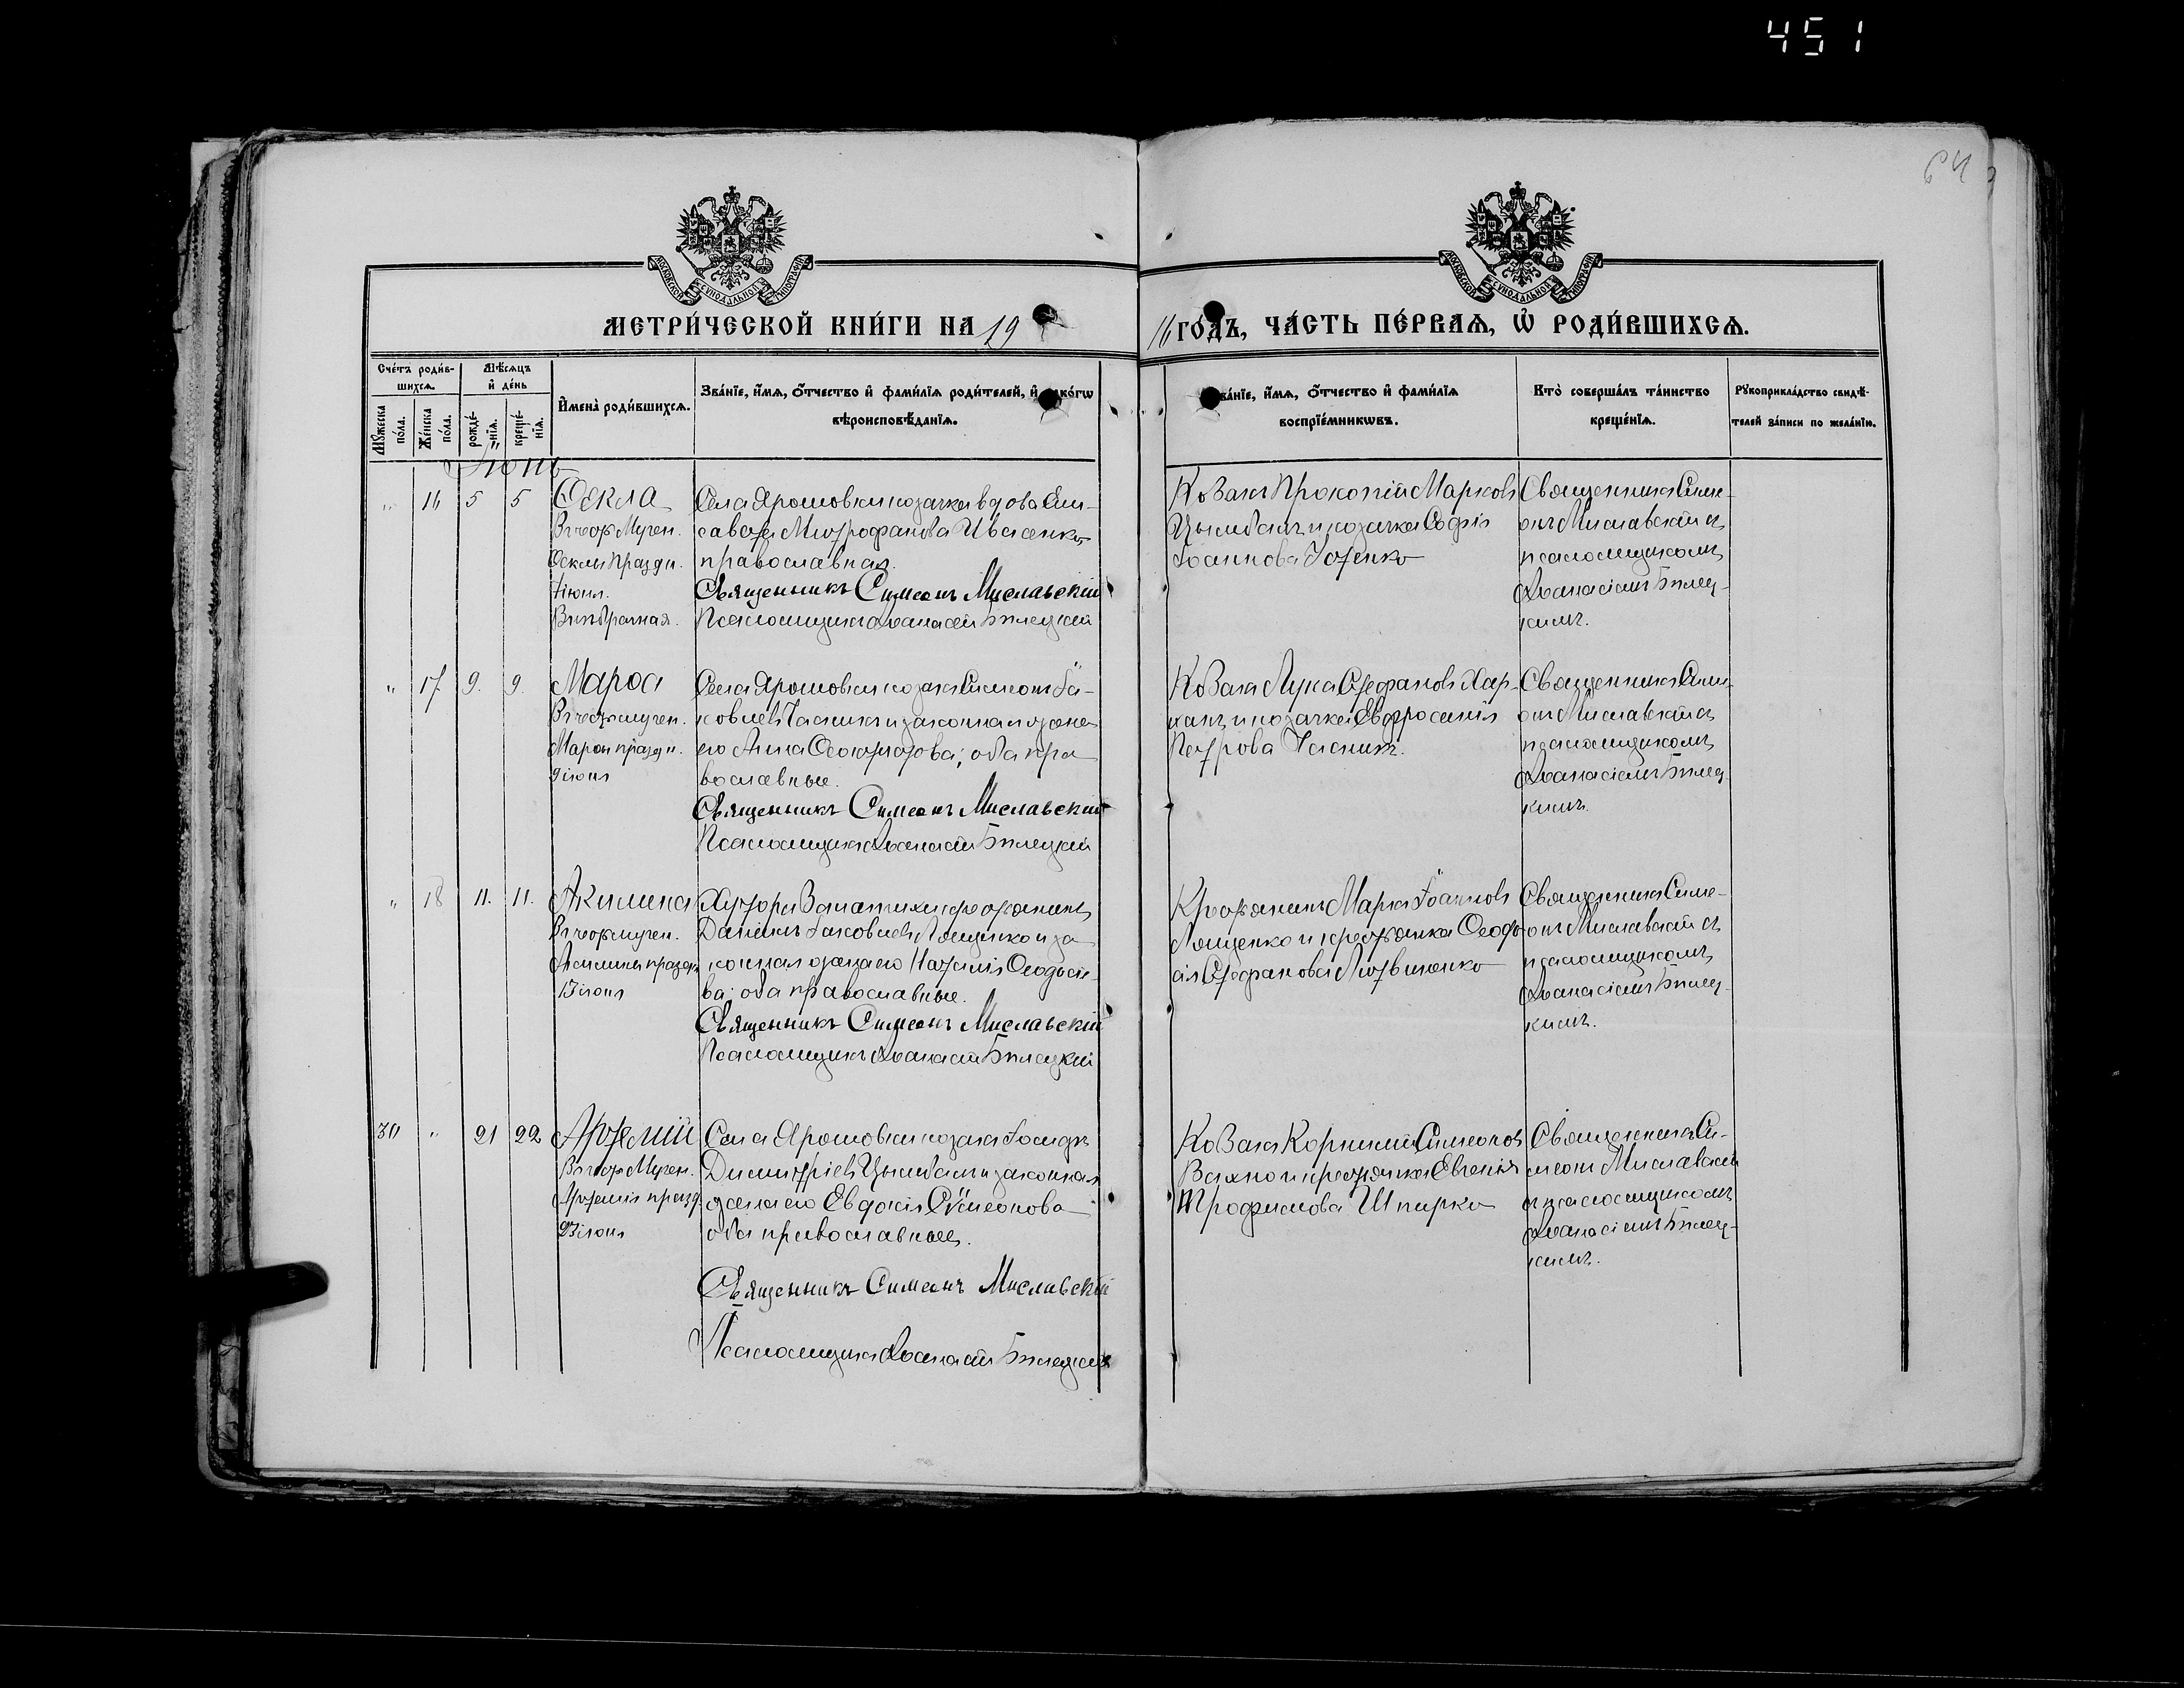 451
64
МОСКОВСКОЙ СѴНОДАЛЬНОЙ ТИПОГРАФІИ
МОСКОВСКОЙ СѴНОДАЛЬНОЙ ТИПОГРАФІИ
МЕТРИ́ЧЕСКОЙ КНИ́ГИ НА 19
16 ГО́ДЪ, ЧА́СТЬ ПЕ́РВАѦ, Ѡ҆ РОДИ́ВШИХСѦ.
Сче́тъ роди́в-
шихсѧ.
Мꙋ́жеска по́ла.
Же́нска по́ла.
Мѣ́сѧцъ
и҆ де́нь
рожде́-нїѧ.
креще́-нїѧ.
И҆мена̀ роди́вшихсѧ.
Зва́нїе, и҆́мѧ, ѻ҆́тчество и҆ фами́лїѧ роди́телей, и҆ како́гѡ
вѣроисповѣ́данїѧ.
Зва́нїе, и҆́мѧ, ѻ҆́тчество и҆ фами́лїѧ
воспрїе́мникѡвъ.
Кто̀ соверша́лъ та́инство
креще́нїѧ.
Рꙋкоприкла́дство свидѣ́-
телей за́писи по жела́нїю.
Іюнь
" 16 5 5 Ѳекла
В честь Мучен.
Ѳеклы праздн.
Іюня.
Внѣбрачная.
Села Ярошовки козачка вдова Ели-
савета Митрофанова Ивасенко,
православная.
Священникъ Симеонъ Миславскій
Псаломщикъ Аѳанасій Билецкій
Козакъ Прокопій Марковъ
Цымбалъ и козачка Софія
Іоаннова
Священникъ Симе-
онъ Миславскій съ
псаломщикомъ
Аѳанасіемъ Билец-
кимъ.
" 17 9. 9. Марѳа
В честь мучен.
Марѳы праздн.
9 іюня
Села Ярошовки козакъ Симеонъ Іа-
ковлевъ и законная жена
его Анна Ѳеоктистова; оба пра-
вославные.
Священникъ Симеонъ Миславскій
Псаломщикъ Аѳанасій Билецкій
Козакъ Лука Стефановъ
и козачка Евфросинія
Петрова
Священникъ Симе-
онъ Миславскій съ
псаломщикомъ
Аѳанасіемъ Билец-
кимъ.
" 18 11. 11. Акилина
В честь мучен.
Акилины праздн.
13 іюня
Хутора крестьянинъ
Даніилъ Іаковлевъ Лященко и за-
конная жена его Наталія Ѳеодосіе-
ва; оба православные.
Священникъ Симеонъ Миславскій
Псаломщикъ Аѳанасій Билецкій
Крестьянинъ Маркъ Іоанновъ
Лященко и крестьянка Ѳеодо-
сія Стефанова Литвиненко
Священникъ Симе-
онъ Миславскій съ
псаломщикомъ
Аѳанасіемъ Билец-
кимъ.
" 21 22 Артемій
В честь Мучен.
Артемія празд.
Іюня
Села Ярошовки козакъ
Димитріевъ Цымбалъ и законная
жена его Евдокія Сѵмеонова
оба православные.
Священникъ Симеонъ Миславскій
Псаломщикъ Аѳанасій Билецкій
Козакъ Корнилій Симеоновъ
Вахно и крестьянка Евгенія
Трофимова Шпирко
Священникъ Си-
меонъ Миславскій
съ псаломщикомъ
Аѳанасіемъ Билец-
кимъ.